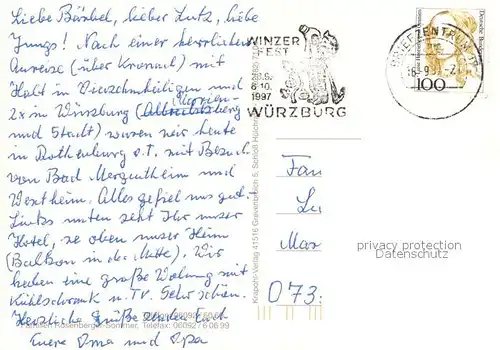 Liebe Bärbel, lieber Lutz, liebe
Jungs! Nach einer herrlichen
Anreise (über Kronach) mit
Halt in Vierzehnheiligen und
2x in Würzburg (Marien-
berg
und Stadt) waren wir heute
in Rothenburg o.T. mit Besuch
von Bad Mergentheim und
Wertheim. Alles gefiel uns gut.
Links unten seht Ihr unser
Hotel, oben unser Heim
(Balkon in der Mitte). Wir
haben eine große Wohnung mit
Kühlschrank u. TV. Sehr schön.
Herzliche Grüße senden Euch
Eure Oma und Opa
Rosenberger-Sommer, Telefax: 06092 / 60 89
Krapohl-Verlag 41516 Grevenbroich 5, Schloß Hülchrath
WINZER
FEST
6.10.
1997
WÜRZBURG
BRIEFZENTRUM 97
100
Fam
Lu
Mar
073
privacy protection
Datenschutz